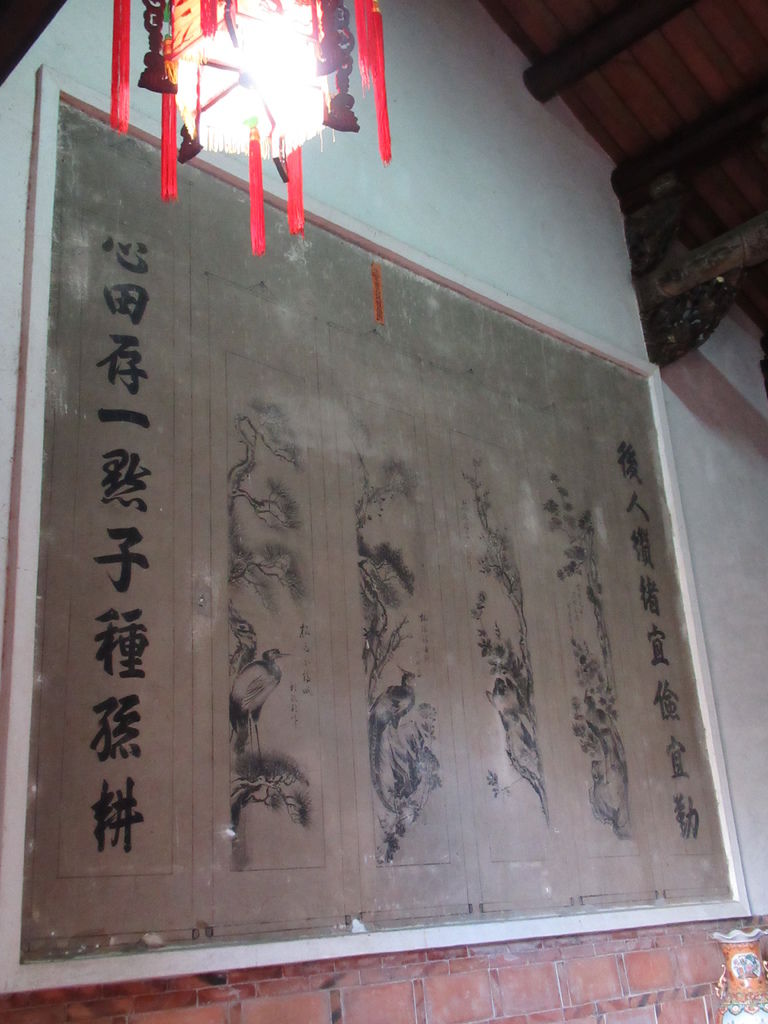 後人纘緒宜儉宜勤
心田存一點子種孫耕